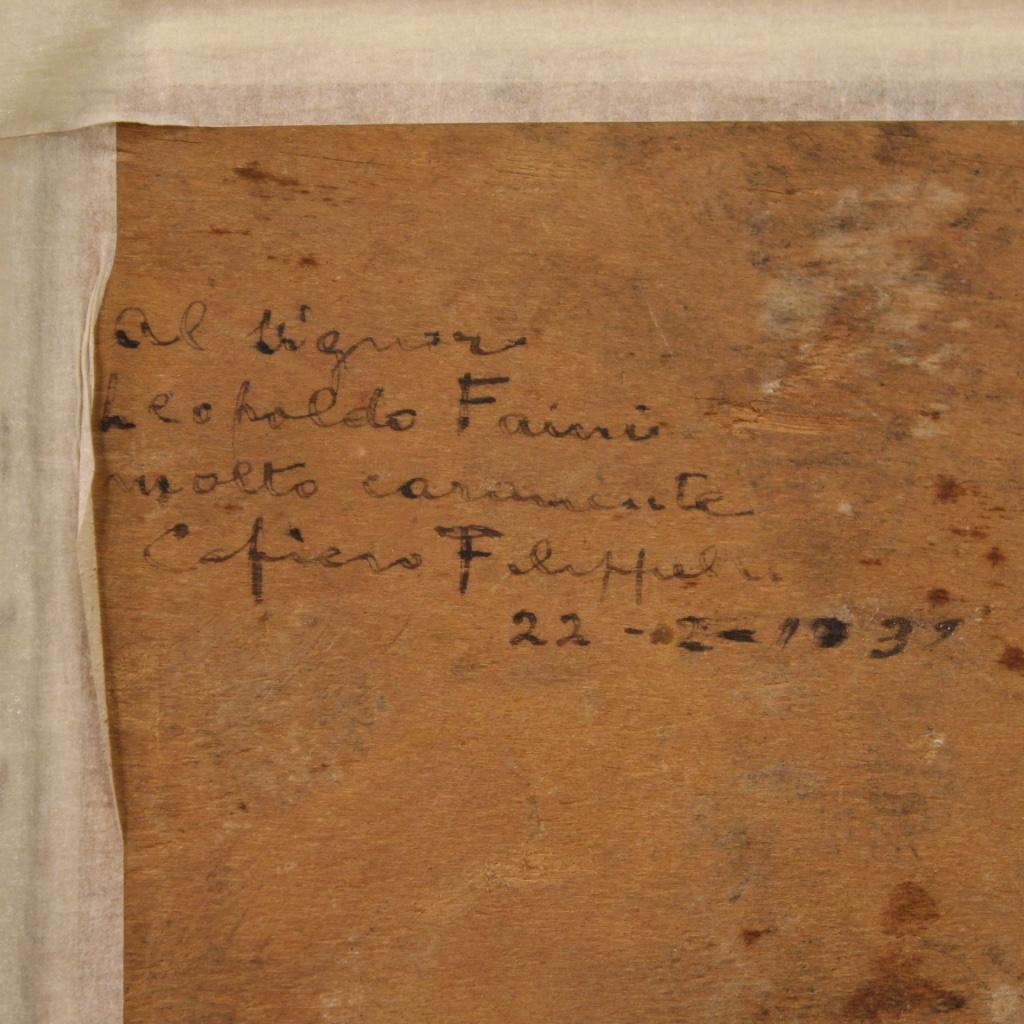 Al Signor
Leopoldo Faini
molto caramente
Cafiero Filippelli
22 - 2 - 1939